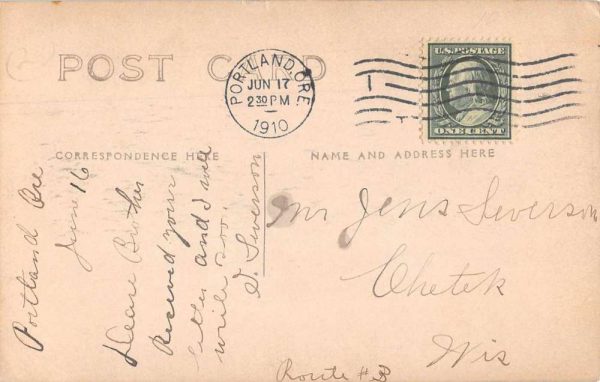 POST CARD
PORTLAND, ORE.
JUN 17
2 30 PM
1910
U.S. POSTAGE
ONE CENT
CORRESPONDENCE HERE
NAME AND ADDRESS HERE
Portland Ore
June 16
Deare Brother
Received your
letter and I will
write soo.
S. Severson
Mr Jens Severson
Chetek
Wis
Route #3